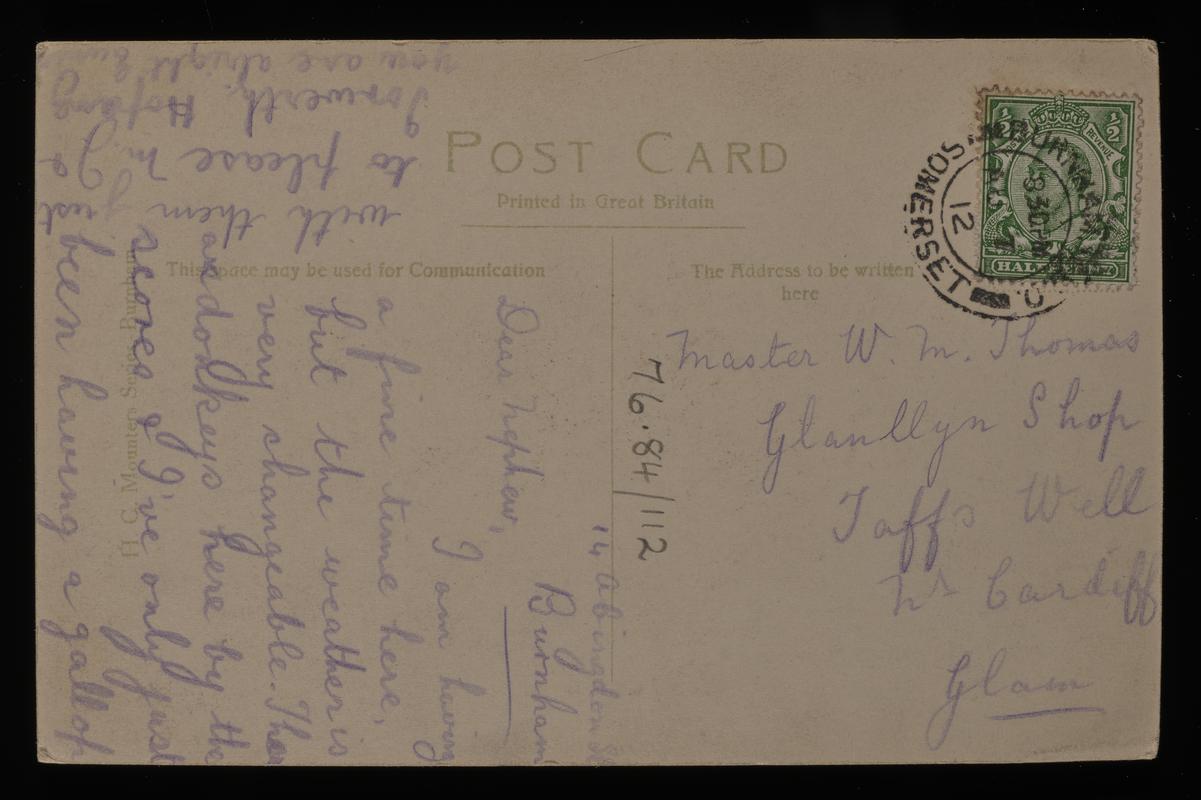 POST CARD
Printed in Great Britain
This space may be used for Communication
The Address to be written
here
H. C. Mounter's Series Burnham
½ ½
HALF PENNY
SOMERSET
8.30 PM
12
76.84/112
Master W. M. Thomas
Glanllyn Shop
Taffs Well
Nr Cardiff
Glam
14 Abingdon St
Burnham
Dear Nephew,
I am having
a fine time here,
but the weather is
very changeable. There
are donkeys here by the
scores & I've only just
been having a gallop
with them just
to please M. J. &
Iorwerth. Hoping
you are alright